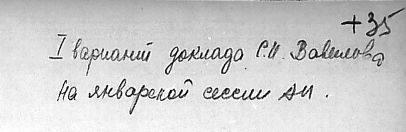 +35
I вариант доклада С.И. Вавилова
на январской сессии АН.